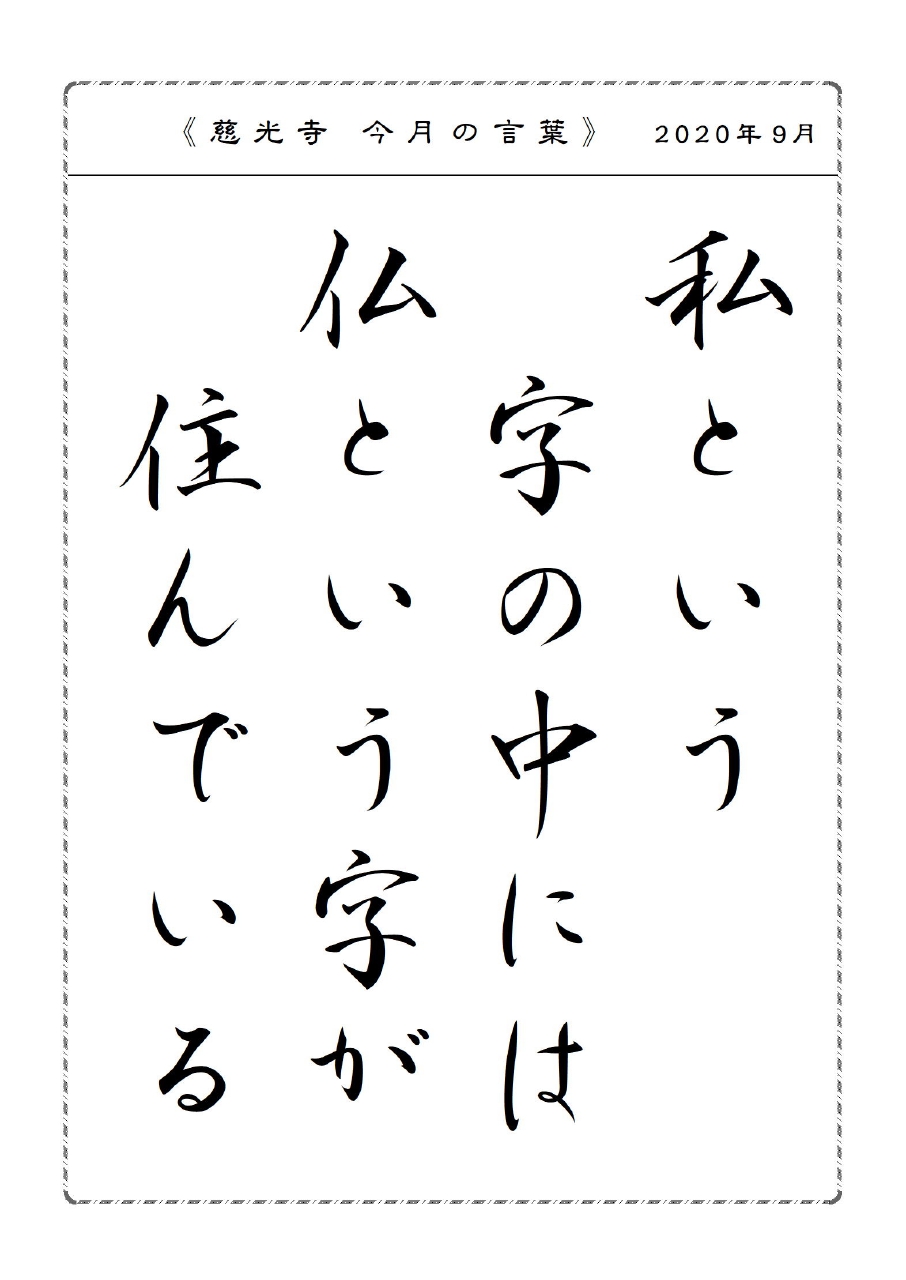 《慈光寺 今月の言葉》 2020年9月
私という
字の中には
仏という字が
住んでいる